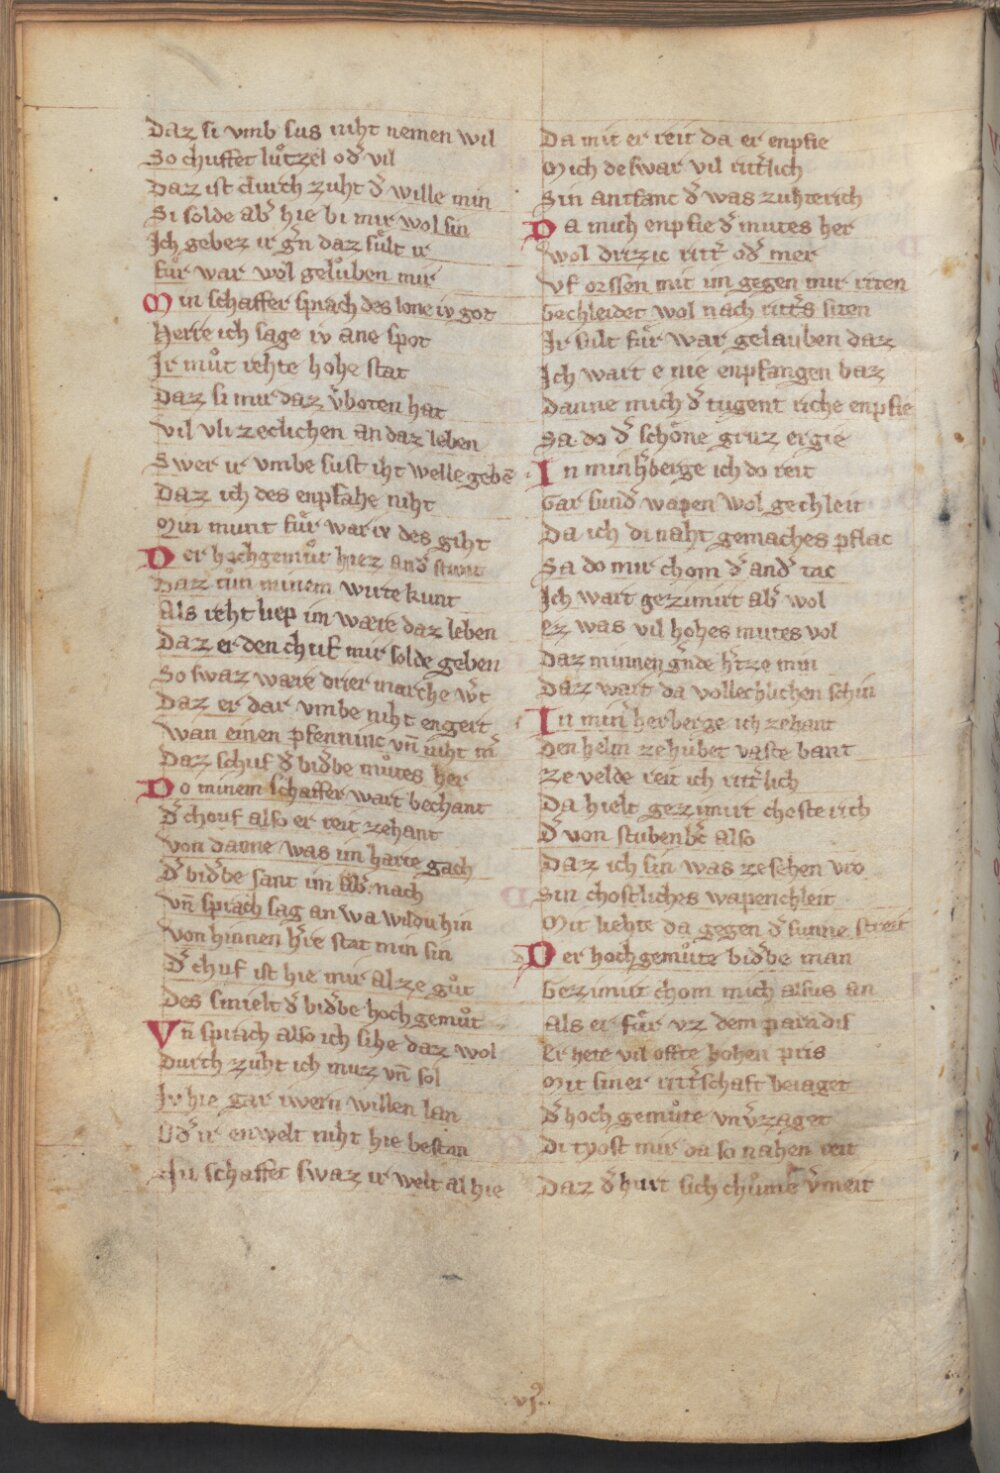 Daz si vmb sus niht nemen wil
So chuffet luͦtzel od̉ vil
Daz ist durch zuht d̉ wille min
Si solde ab̉ hie bi mir wol sin
Ich gebez ir g̉n daz suͤlt ir
fuͤr war wol geluͦben mir
Min schaffer sprach des lone iv got
Herre ich sage iv ane spot
Ir muͦt rehte hohe stat
Daz si mir daz v̉boten hat
Vil vlizeclichen an daz leben
Swer ir vmbe sust iht welle gebē
Daz ich des enpfahe niht
Min munt fuͤr war iv des giht
Der hochgemuͦt hiez and̉ stunt
Daz tuͦn minem wirte kunt
Als reht liep im wære daz leben
Daz er den chuf mir solde geben
So swaz ware drier marche w̉t
Daz er dar vmbe niht engert
Wan einen pfenninc vn̄ niht m̉
Daz schuf d̉ bid̉be muͦtes her
Do minem schaffer wart bechant
D̉ chouf also er reit zehant
Von danne was im harte gach
D̉ bid̉be sant im ab̉ nach
Vn̄ sprach sag an wa wildu hin
Von hinnen h̉re stat min sin
D̉ chuf ist hie mir al ze guͦt
Des smielt d̉ bid̉be hoch gemuͦt
Vn̄ sprach also ich sihe daz wol
Durch zuht ich muz vn̄ sol
Iv hie gar iwern willen lan
Od̉ ir enwelt niht hie bestan
Nu schaffet swaz ir welt al hie
Da mit er reit da er enpfie
Mich deswar vil ritt̉lich
Sin antfanc d̉ was zuhterich
Da mich enpfie d̉ mutes her
Wol drizic ritt̉ od̉ mer
Vf orssen mit im gegen mir riten
Gechleidet wol nach ritt̉s siten
Ir sult fuͤr war gelauben daz
Ich wart e nie enpfangen baz
Danne mich d̉ tugent riche enpfie
Sa do d̉ schoͤne gruz ergie
In min h̉berge ich do reit
Gar sund̉ wapen wol gechleit
Da ich di naht gemaches pflac
Sa do mir chom d̉ and̉ tac
Ich wart gezimirt ab̉ wol
Ez was vil hohes mutes vol
Daz minnen g̉nde h̉tze min
Daz wart da vollechlichen schin
In min̉ herberge ich zehant
Den helm ze hubet vaste bant
Ze velde reit ich ritt̉lich
Da hielt gezimirt choste rich
D̉ von stubenb̉c also
Daz ich sin was ze sehen vro
Sin chostliches wapenchleit
Mit liehte da gegen d̉ sunne streit
Der hochgemuͦte bid̉be man
Gezimirt chom mich alsus an
Als er fuͤr vz dem paradis
Er hete vil offte hohen pris
Mit siner ritt̉schaft beiaget
D̉ hoch gemuͦte vnv̉zaget
Di tyost mir da so nahen reit
Daz d̉ hurt sich chuͦme v̉meit
vj⁹